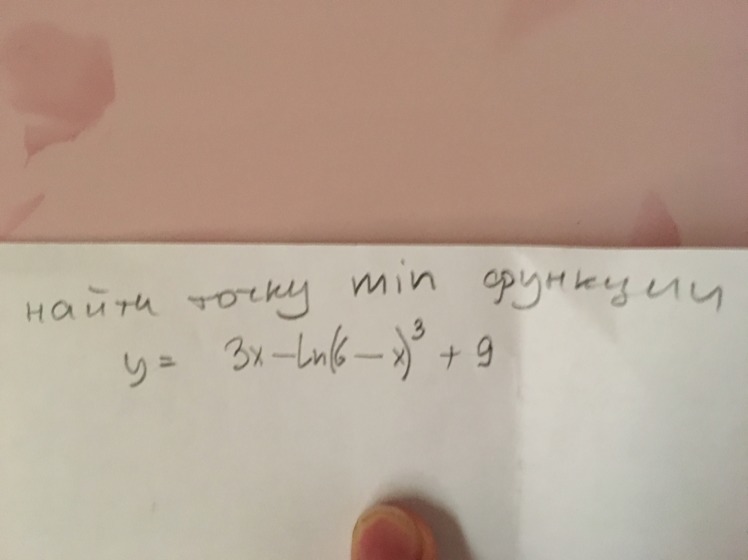 найти точку min функции
y = 3x - Ln(6 - x)³ + 9